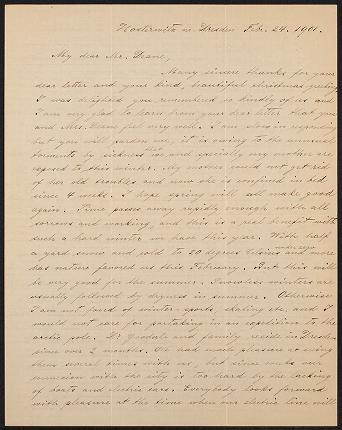 Hosterwitz n. Dresden Febr. 24. 1901.
My dear Mr. Deane,
Many sincere thanks for your
dear letter and your kind, beautiful Christmas greeting
I was delighted you remembered so kindly of us and
I am very glad to learn from your dear letter that you
and Mrs. Deane feel very well. I am slow in responding
but you will pardon me, it is owing to the unusual
torments by sickness that we and specially my mother are
exposed to this winter. My mother could not get rid
of her old troubles and now she is confined in bed
since 4 weeks. I hope spring will all make good
again. Time passes away rapidly enough with all
sorrows and working, and this is a real benefit with
such a hard winter we have this year. With half
a yard snow and cold to 20 degrees Celsius and more
has nature favored us this February. But this will
be very good for the summer. Snowless winters are
usually followed by dryness in summer. Otherwise
I am not fond of winter-sports, skating etc. and I
would not care for partaking in an expedition to the
arctic pole. Dr. Goodale and family reside in Dresden
since over 2 months. We had much pleasure at seeing
them several times with us, but since weeks our
connexion with the city is too hard by the lacking
of boats and electric cars. Everybody looks forward
with pleasure at the time when our electric line will